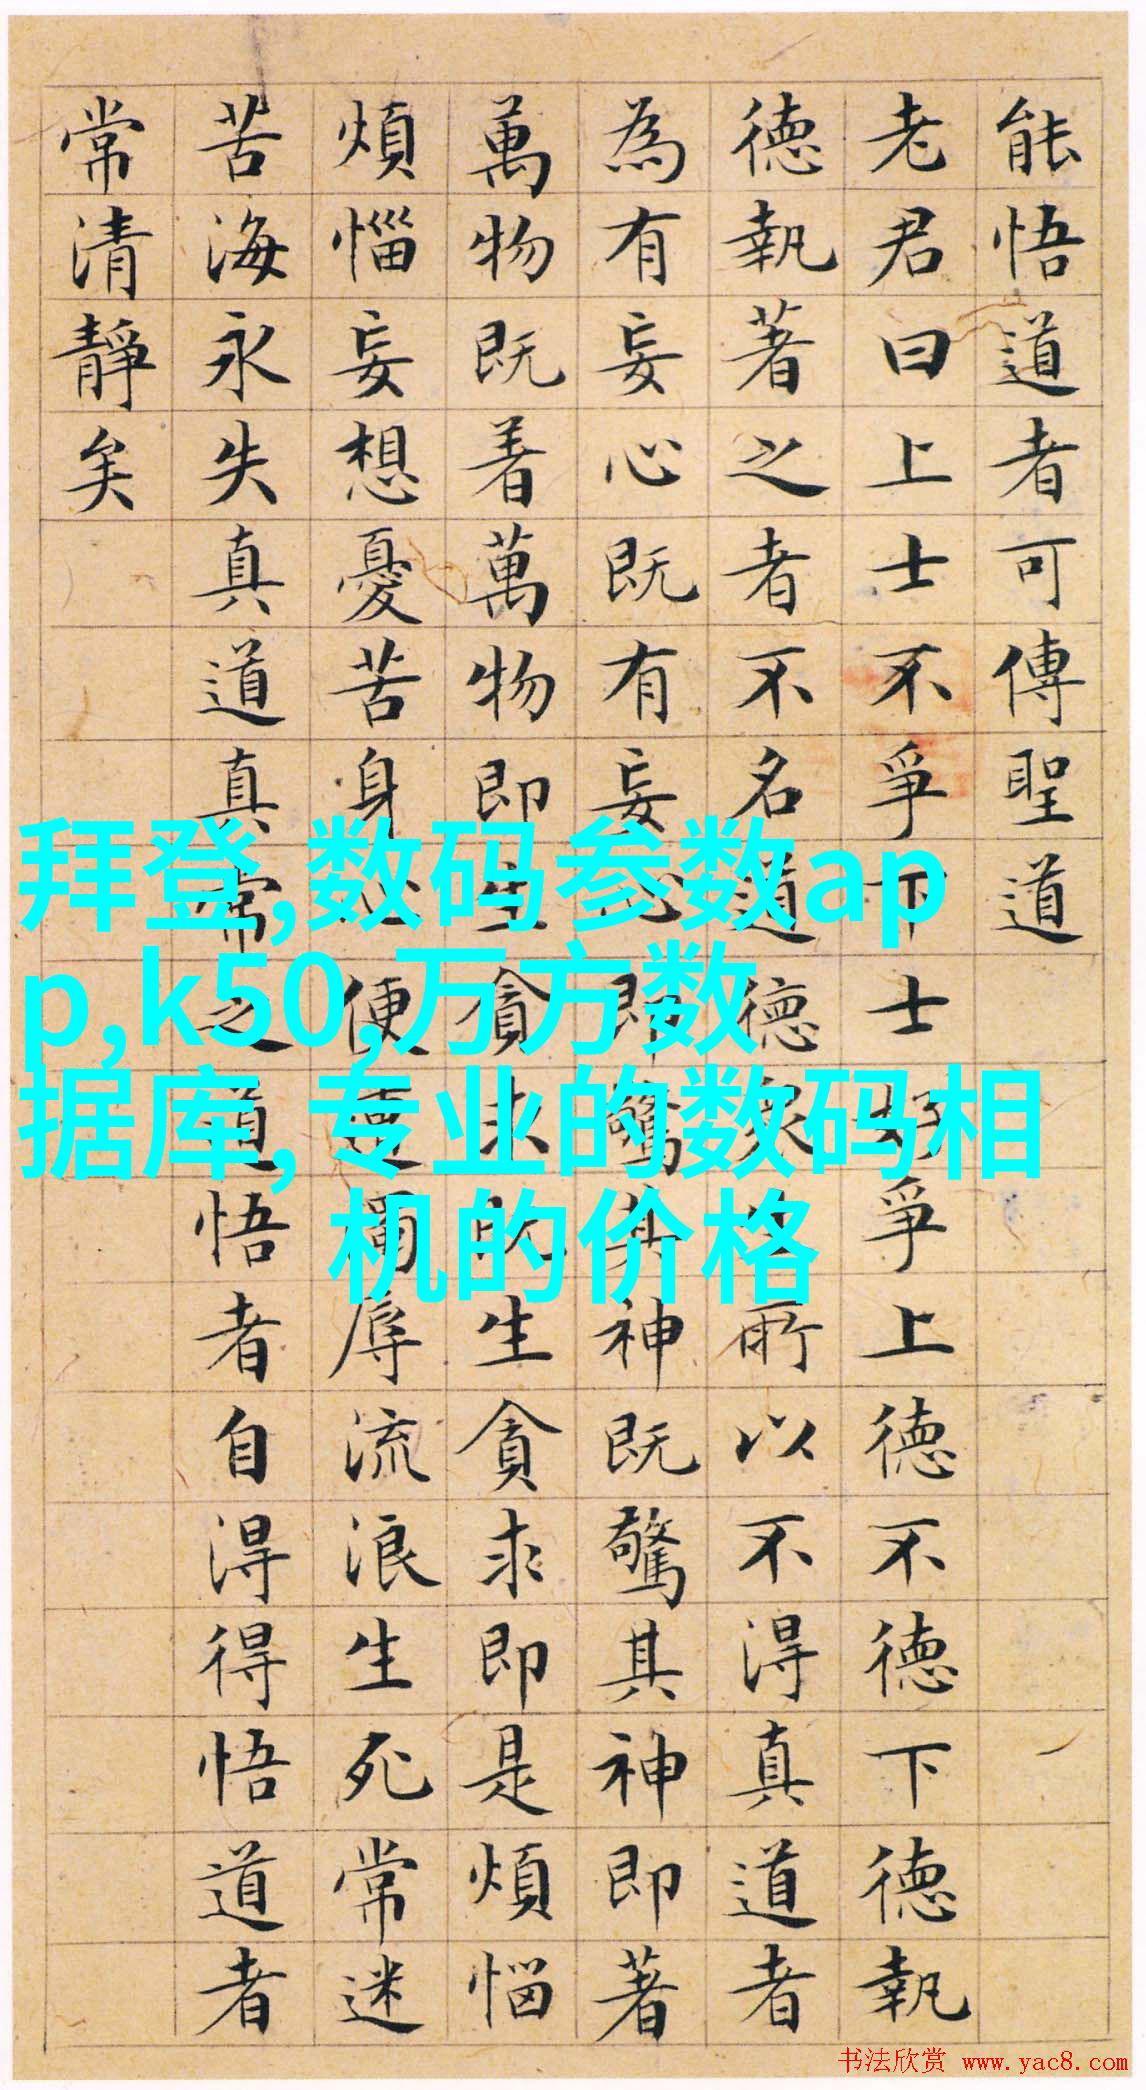 能悟道者可傳聖道
老君曰上士不爭下士好爭上德不德下德執
德執著之者不名道德衆生所以不淂真道者
為有妄心既有妄心即驚其神既驚其神即著
萬物既着萬物即生貪求既生貪求即是煩惱
煩惱妄想憂苦身心便遭濁辱流浪生死常迷
苦海永失真道真常之道悟者自淂得悟道者
常清靜矣
拜登,数码参数ap
p,k50,万方数
据库,专业的数码相
机的价格
书法欣赏 www.yac8.com